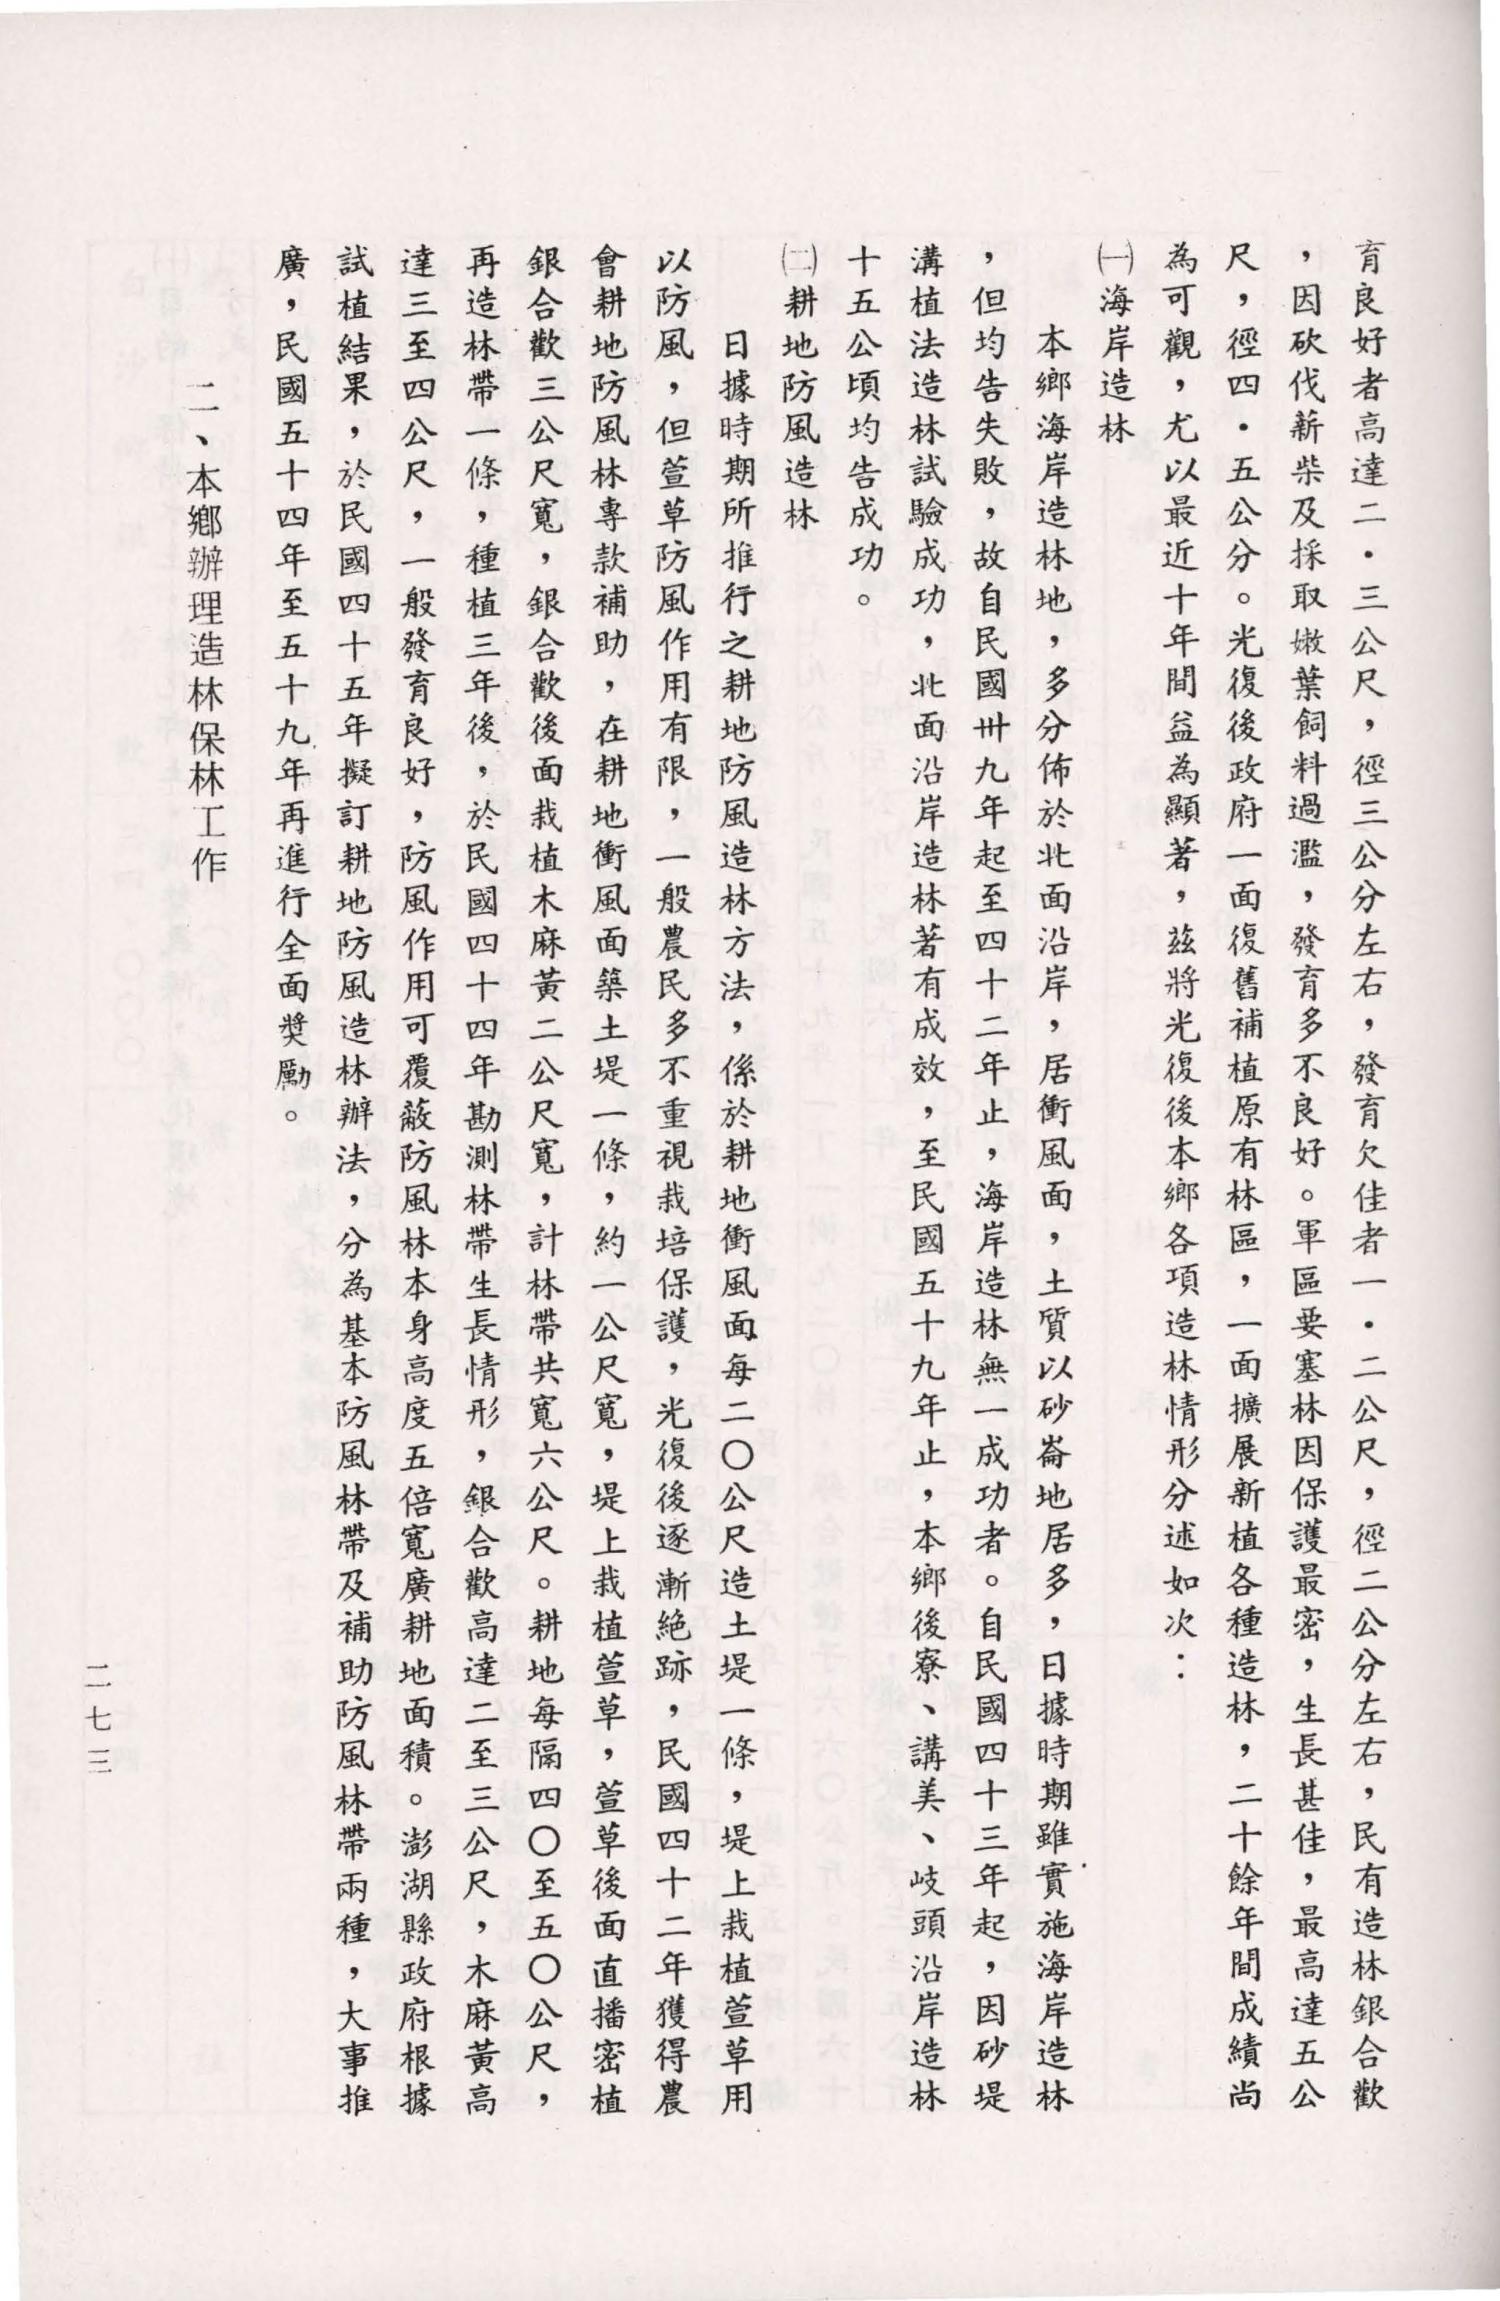 育良好者高達二．三公尺，徑三公分左右，發育欠佳者一．二公尺，徑二公分左右，民有造林銀合歡
，因砍伐薪柴及採取嫩葉飼料過濫，發育多不良好。軍區要塞林因保護最密，生長甚佳，最高達五公
尺，徑四．五公分。光復後政府一面復舊補植原有林區，一面擴展新植各種造林，二十餘年間成績尚
為可觀，尤以最近十年間益為顯著，茲將光復後本鄉各項造林情形分述如次：
㈠海岸造林
本鄉海岸造林地，多分佈於北面沿岸，居衝風面，土質以砂崙地居多，日據時期雖實施海岸造林
，但均告失敗，故自民國卅九年起至四十二年止，海岸造林無一成功者。自民國四十三年起，因砂堤
溝植法造林試驗成功，北面沿岸造林著有成效，至民國五十九年止，本鄉後寮、講美、岐頭沿岸造林
十五公頃均告成功。
㈡耕地防風造林
日據時期所推行之耕地防風造林方法，係於耕地衝風面每二〇公尺造土堤一條，堤上栽植萱草用
以防風，但萱草防風作用有限，一般農民多不重視栽培保護，光復後逐漸絕跡，民國四十二年獲得農
會耕地防風林專款補助，在耕地衝風面築土堤一條，約一公尺寬，堤上栽植萱草，萱草後面直播密植
銀合歡三公尺寬，銀合歡後面栽植木麻黃二公尺寬，計林帶共寬六公尺。耕地每隔四〇至五〇公尺，
再造林帶一條，種植三年後，於民國四十四年勘測林帶生長情形，銀合歡高達二至三公尺，木麻黃高
達三至四公尺，一般發育良好，防風作用可覆蔽防風林本身高度五倍寬廣耕地面積。澎湖縣政府根據
試植結果，於民國四十五年擬訂耕地防風造林辦法，分為基本防風林帶及補助防風林帶兩種，大事推
廣，民國五十四年至五十九年再進行全面獎勵。
二、本鄉辦理造林保林工作
二七三